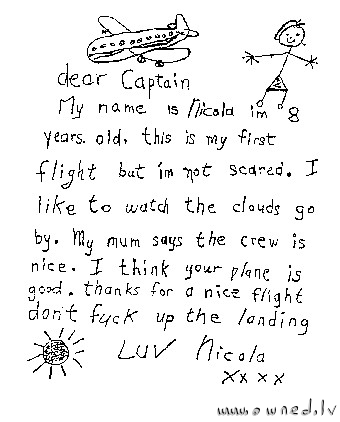 dear Captain
My name is Nicola im 8
years old, this is my first
flight but im not scared. I
like to watch the clouds go
by. My mum says the crew is
nice. I think your plane is
good. thanks for a nice flight
don't fuck up the landing
LUV Nicola
xxxx
www.owned.lv